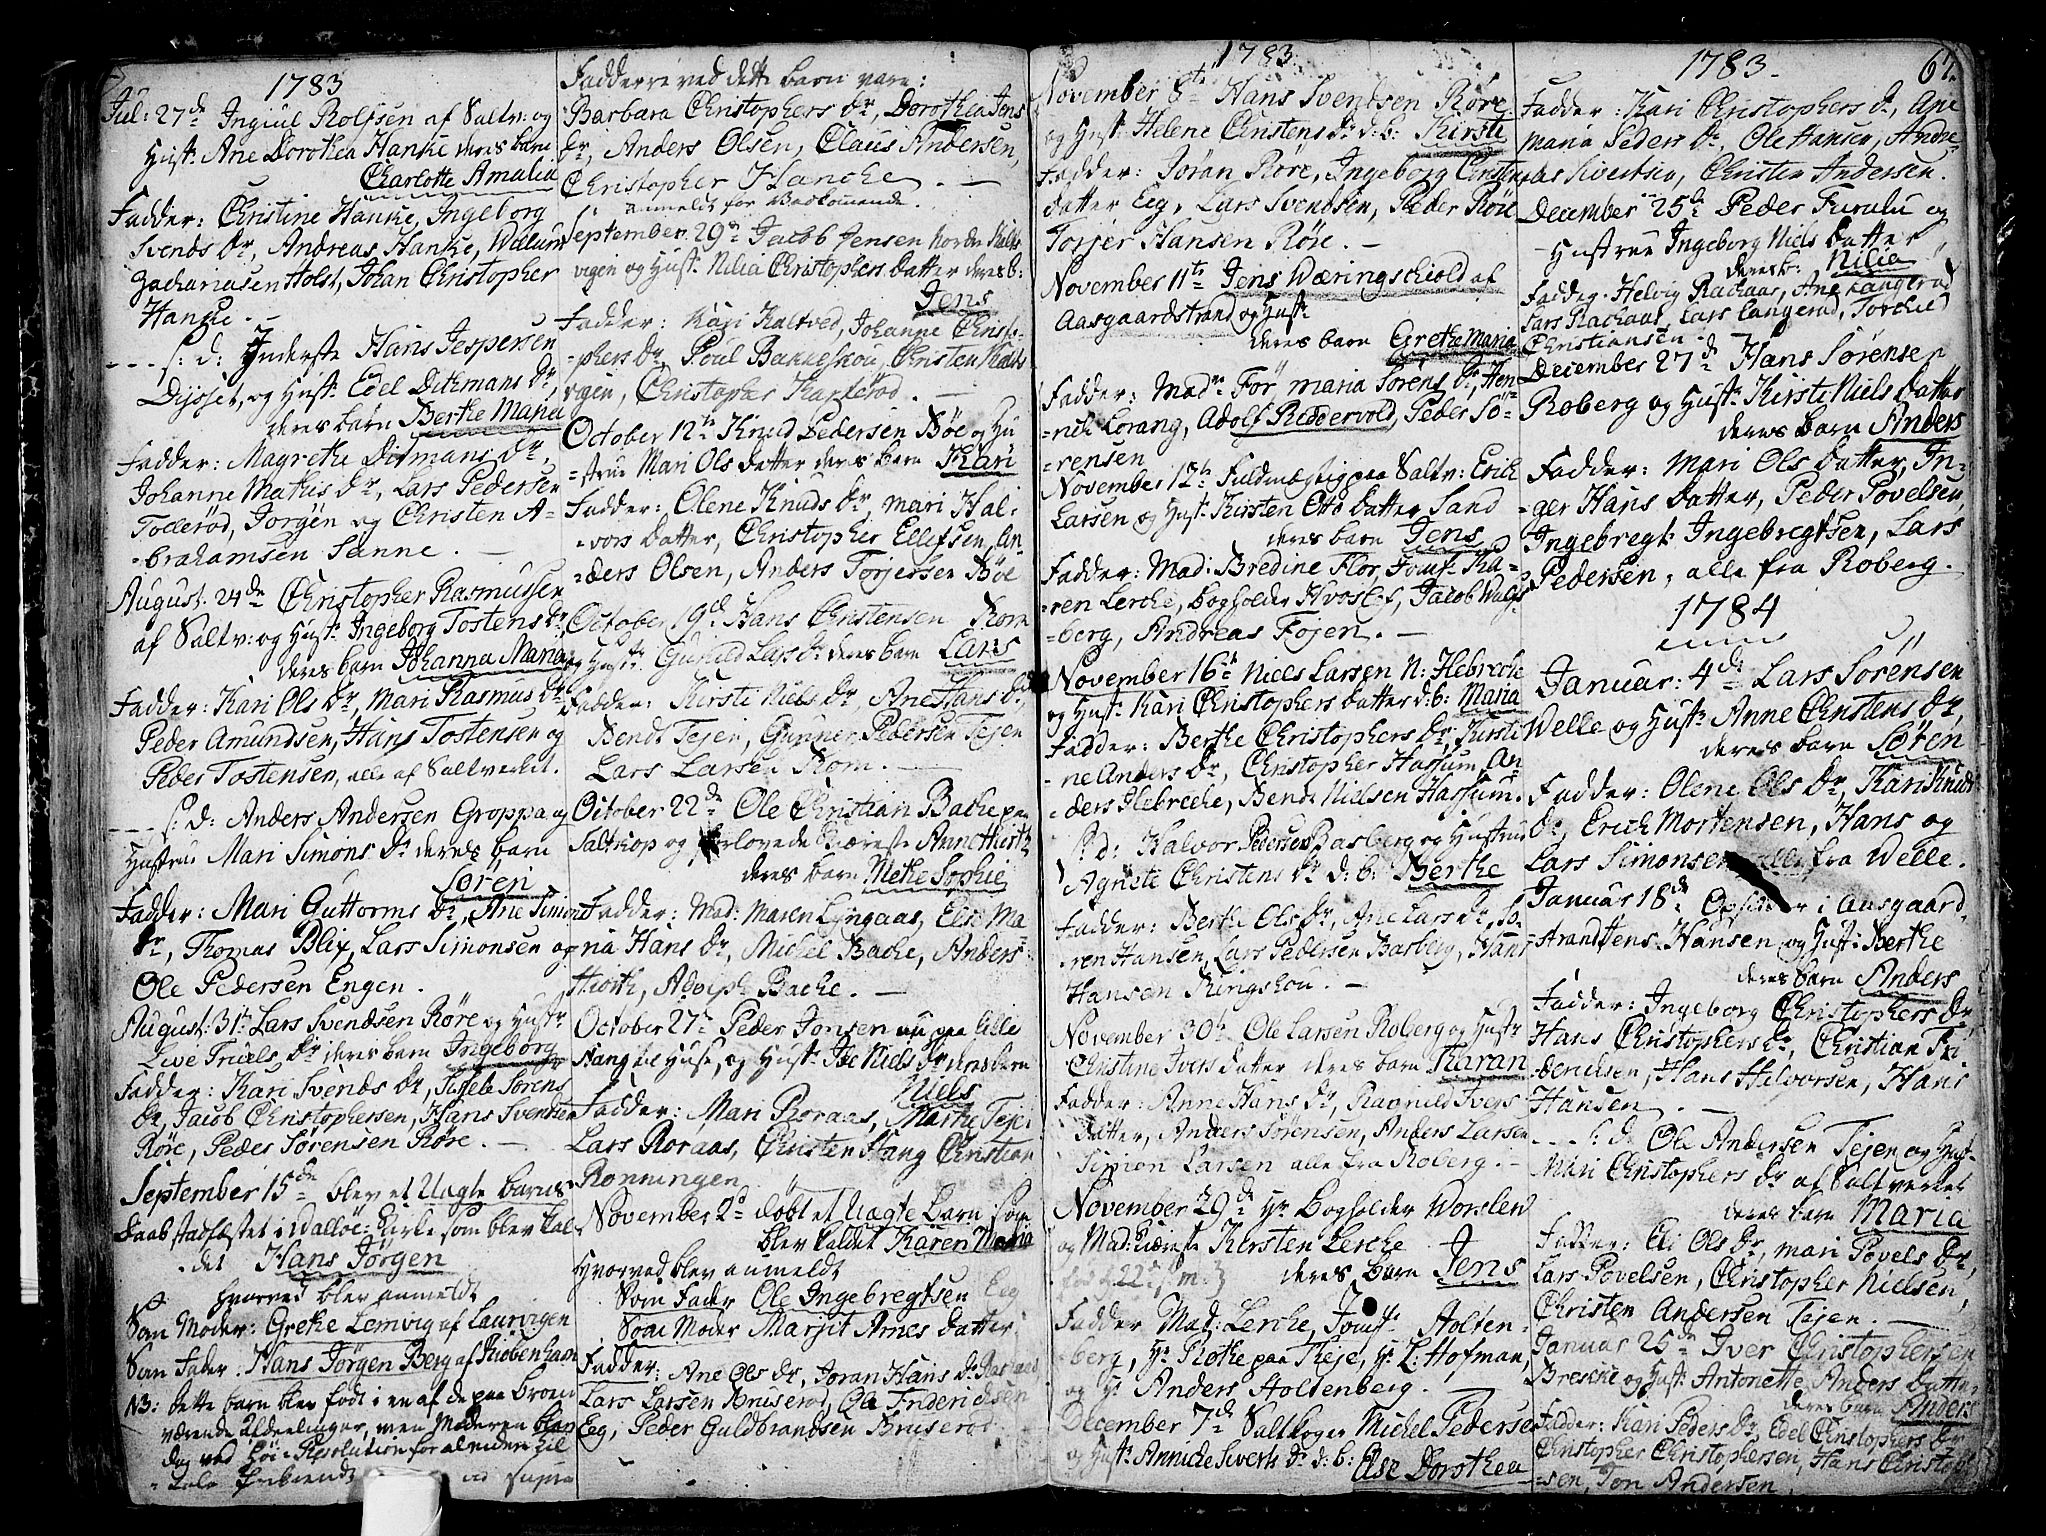 1783
Jul: 27de Ingiul Rolfsen af Saltv: og
Hust: Ane Dorothea Hanke deres barn
Charlotte Amalia
Fadder: Christine Hanke, Ingeborg
Svends Dr, Andreas Hanke, Willum
Zachariasen Holst, Johan Christopher
Hanke.
s: d: Inderste Hans Jespersen
Dijsset, og Hust: Edel Ditmans Dr,
deres barn Berthe Maria
Fadder: Magrethe Ditmans Dr,
Johanne Mathis Dr, Lars Pedersen
Tollerød, Jorgen og Christen A-
-brahamsen Sanne.
August: 24de Christopher Rasmussen
af Saltv: og Hust: Ingeborg Tostens Dr,
deres barn Johanna Maria
Fadder: Kari Ols Dr, Mari Rasmus Dr
Peder Amundsen, Hans Tostensen og
Peder Tostensen, alle af Saltverket.
s: d: Anders Andersen Groppa og
Hustrue Mari Simons Dr deres barn
Søren
Fadder: Mari Guttorms Dr, Ane Simons
Dr, Thomas Blix, Lars Simonsen og
Ole Pedersen Engen.
August: 31te Lars Svendsen Røre og Hustr
Live Truels Dr deres barn Ingeborg
Fadder: Kari Svends Dr, Sørens
Dr, Jacob Christophersen, Hans Svendsen
Røre, Peder Sørensen Røre.
September 15de blev et Uægte barns
Daab stadfæstet i Vallöe: Kirke som blev kal-
-det Hans Jörgen
Hvorved blev anmeldt
Som Moder: Grethe Lemvig af Laurvigen
Som Fader: Hans Jörgen Berg af Kiöbenhavn
NB: dette barn blev födt i en af de paa Broen
værende Afdeelinger, men Moderen
dag ved Höi: Resolution for al videre til
-tale
Fadderne ved dette barn vare:
Barbara Christophers Dr, Dorothea Jens
Dr, Anders Olsen, Claus Andersen,
Christopher Hancke.
Anmeldt for Vedkommende.
September 29de Jacob Jensen Nordre Skalle
vigen og Hust: Nilia Christophers Datter deres b:
Jens
Fadder: Kari Kaltved, Johanne Christo-
-phers Dr, Poul Bakkeskou, Christen Skalle
vigen, Christopher Karlerød.
October 12te Knud Pedersen Böe og Hu
-strue Mari Ols datter deres barn Kari
Fadder: Olene Knuds Dr, Mari Hal-
-vors datter, Christopher Ellefsen, An-
-ders Olsen, Anders Torjersen Böe
October 19de Hans Christensen Rom
og Hustr: Gunild Lars Dr deres barn Lars
Fadder: Kirsti Niels Dr, Ane Hans Dr,
Bendt Tejen, Gunner Pedersen Tejen
Lars Larsen Rom.
October 22de Ole Christian Bache paa
Saltkop og forlovede Kiæreste Anne Hiorth
deres barn Methe Sophie
Fadder: Mad: Maren Lyngaas, Else Ma-
ria Hans Dr, Michel Bache, Anders
Hiorth, Adolph Bache.
October 27de Peder Jonsen nu paa lille
Hang et Huse, og Hust: Ide Niels Dr deres barn
Niels
Fadder: Mari Roraas, Marthe Teje:
Lars Roraas, Christen Hang Christian
Rønningen
November 2de døbt et Uægte barn som
blev kaldet Karen Maria
Hvorved blev anmeldt
Som Fader Ole Ingebregtsen Eeg
Som Moder Margit Arnes datter
Fadder: Ane Ols Dr, Joran Hans Dr
Lars Larsen Bruserød, Ole Friderichsen
Eeg, Peder Guldbrandsen Bruserød
1783
November 8te Hans Svendsen Røre
og Hust: Helene Christens Dr d: b: Kirsti
Fadder: Jöran Röre, Ingeborg Christens
datter Eeg, Lars Svendsen, Peder Röre
Torjer Hansen Röre.
November 11te Jens Wæringschiold af
Aasgaardstrand og Hust:
deres barn Grethe Maria
Fadder: Madme För, Maria Sörens Dr, Hen-
-rich Lorang, Adolf Riddervold, Peder Sö-
-rensen
November 12te Fuldmægtig paa Saltv: Erich
Larsen og Hust: Kirsten Otto datter Sand
deres barn Jens
Fadder: Mad: Bredine Flor, Jomfr: Ka-
-ren Lerche, bogholder Hvoslef, Jacob Wulfs
-berg, Andreas Föjen.
November 16de Niels Larsen N: Hlebrech
og Hust: Kari Christophers datter d: b: Maria
Fadder: Berthe Christophers Dr, Kirsti-
ne Anders Dr, Christopher Hassum, An-
-ders Hlebreche, Bendt Nielsen Hassum.
s: d: Halvor Pedersen Basberg og Hustrue
Agnete Christens Dr d: b: Berthe
Fadder: Berthe Ols Dr, Ane Lars Dr, Sö-
-ren Hansen, Lars Pedersen Basberg, Hans
Hansen Ringskou.
November 30te Ole Larsen Roberg og Hustr
Christine Ivers datter deres barn Karan
Fadder: Anne Hans Dr, Ragnild Ivers
datter, Anders Sörensen, Anders Larsen
Simon Larsen alle fra Roberg.
November 29de Hr Bogholder Worslew
og Mad: Kiæreste Kirsten Lerche
deres barn Jens
Fadder Mad: Lerche, Jomfr Holten-
-berg, Hr Rothe paa Teje, Hr L: Hofman,
og Hr Anders Holtenberg.
December 7de Saltkoger Michel Pedersen
og Hust: Annicke Siverts Dr d: b: Else Dorothea
1783.
67.
Fadder: Kari Christophers Dr, Ane
Maria Peders Dr, Ole Hansen, Andre-
-as Sivertsen, Christen Andersen.
December 25de Peder Furulu og
Hustrue Ingeborg Niels datter
deres b: Nilia
Fadder: Helvig Rachaas, Ane Langerød
Lars Rachaas, Lars Langerød, Torchel
Christiansen.
December 27de Hans Sørensen
Roberg og Hust: Kirsti Niels datter
deres barn Anders
Fadder: Mari Ols datter, In-
-ger Hans datter, Peder Povelsen,
Ingebregt Ingebregtsen, Lars
Pedersen, alle fra Roberg.
1784
Januar: 4de Lars Sørensen
Welle og Hust: Anne Christens Dr,
deres barn Søren
Fadder: Olene Ols Dr, Kari Knuds
Dr, Erich Mortensen, Hans og
Lars Simonsen alle fra Welle.
Januar 18de Opsidder i Aasgaard-
strand Jens Hansen og Hust: Berthe
deres barn Anders
Fadder: Ingeborg Christophers Dr
Hans Christophers Dr, Christian Fri-
derichsen, Hans Halvorsen, Hans
Hansen.
s: d: Ole Andersen Tejen og Hust:
Mari Christophers Dr af Saltverket
deres barn Maria
Fadder: Eli Ols Dr, Mari Povels Dr,
Lars Povelsen, Christopher Nielsen,
Christen Andersen Tejen.
Januar 25de Iver Christophersen
Brecke og Hust: Antonette Anders datter
deres barn Anders
Fadder: Kari Peders Dr, Edel Christophers Dr
Christopher Christophersen, Hans Christoph
-sen, Jon Andersen